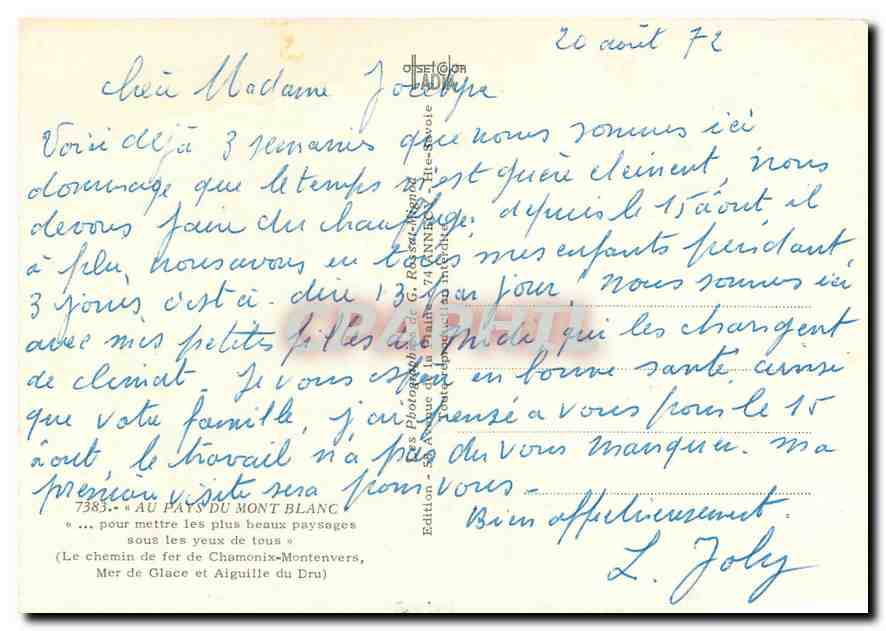 20 août 72
OFFSET COLOR
LADYA
chère Madame Jocelyne
Voici déjà 3 semaines que nous sommes ici
dommage que le temps n'est guère clément, nous
devons faire du chauffage, depuis le 15 août, il
à plu, nous avons eu tous mes enfants pendant
3 jours c'est à-dire 13 par jour, nous sommes ici
avec mes petites filles du Midi qui les changent
de climat. Je vous espère en bonne santé, ainsi
que votre famille, j'ai pensé a vous pour le 15
août, le travail n'a pas du vous manquer. Ma
première visite sera pour vous-
Bien affectueusement.
L. Joly
7383.- « AU PAYS DU MONT BLANC
« ... pour mettre les plus beaux paysages
sous les yeux de tous »
(Le chemin de fer de Chamonix-Montenvers,
Mer de Glace et Aiguille du Dru)
Les Photographies de G. Rossat-Mignod
Edition - 58 Avenue de la Plaine, 74-ANNECY - Hte-Savoie
toute reproduction interdite
CPAPHIL